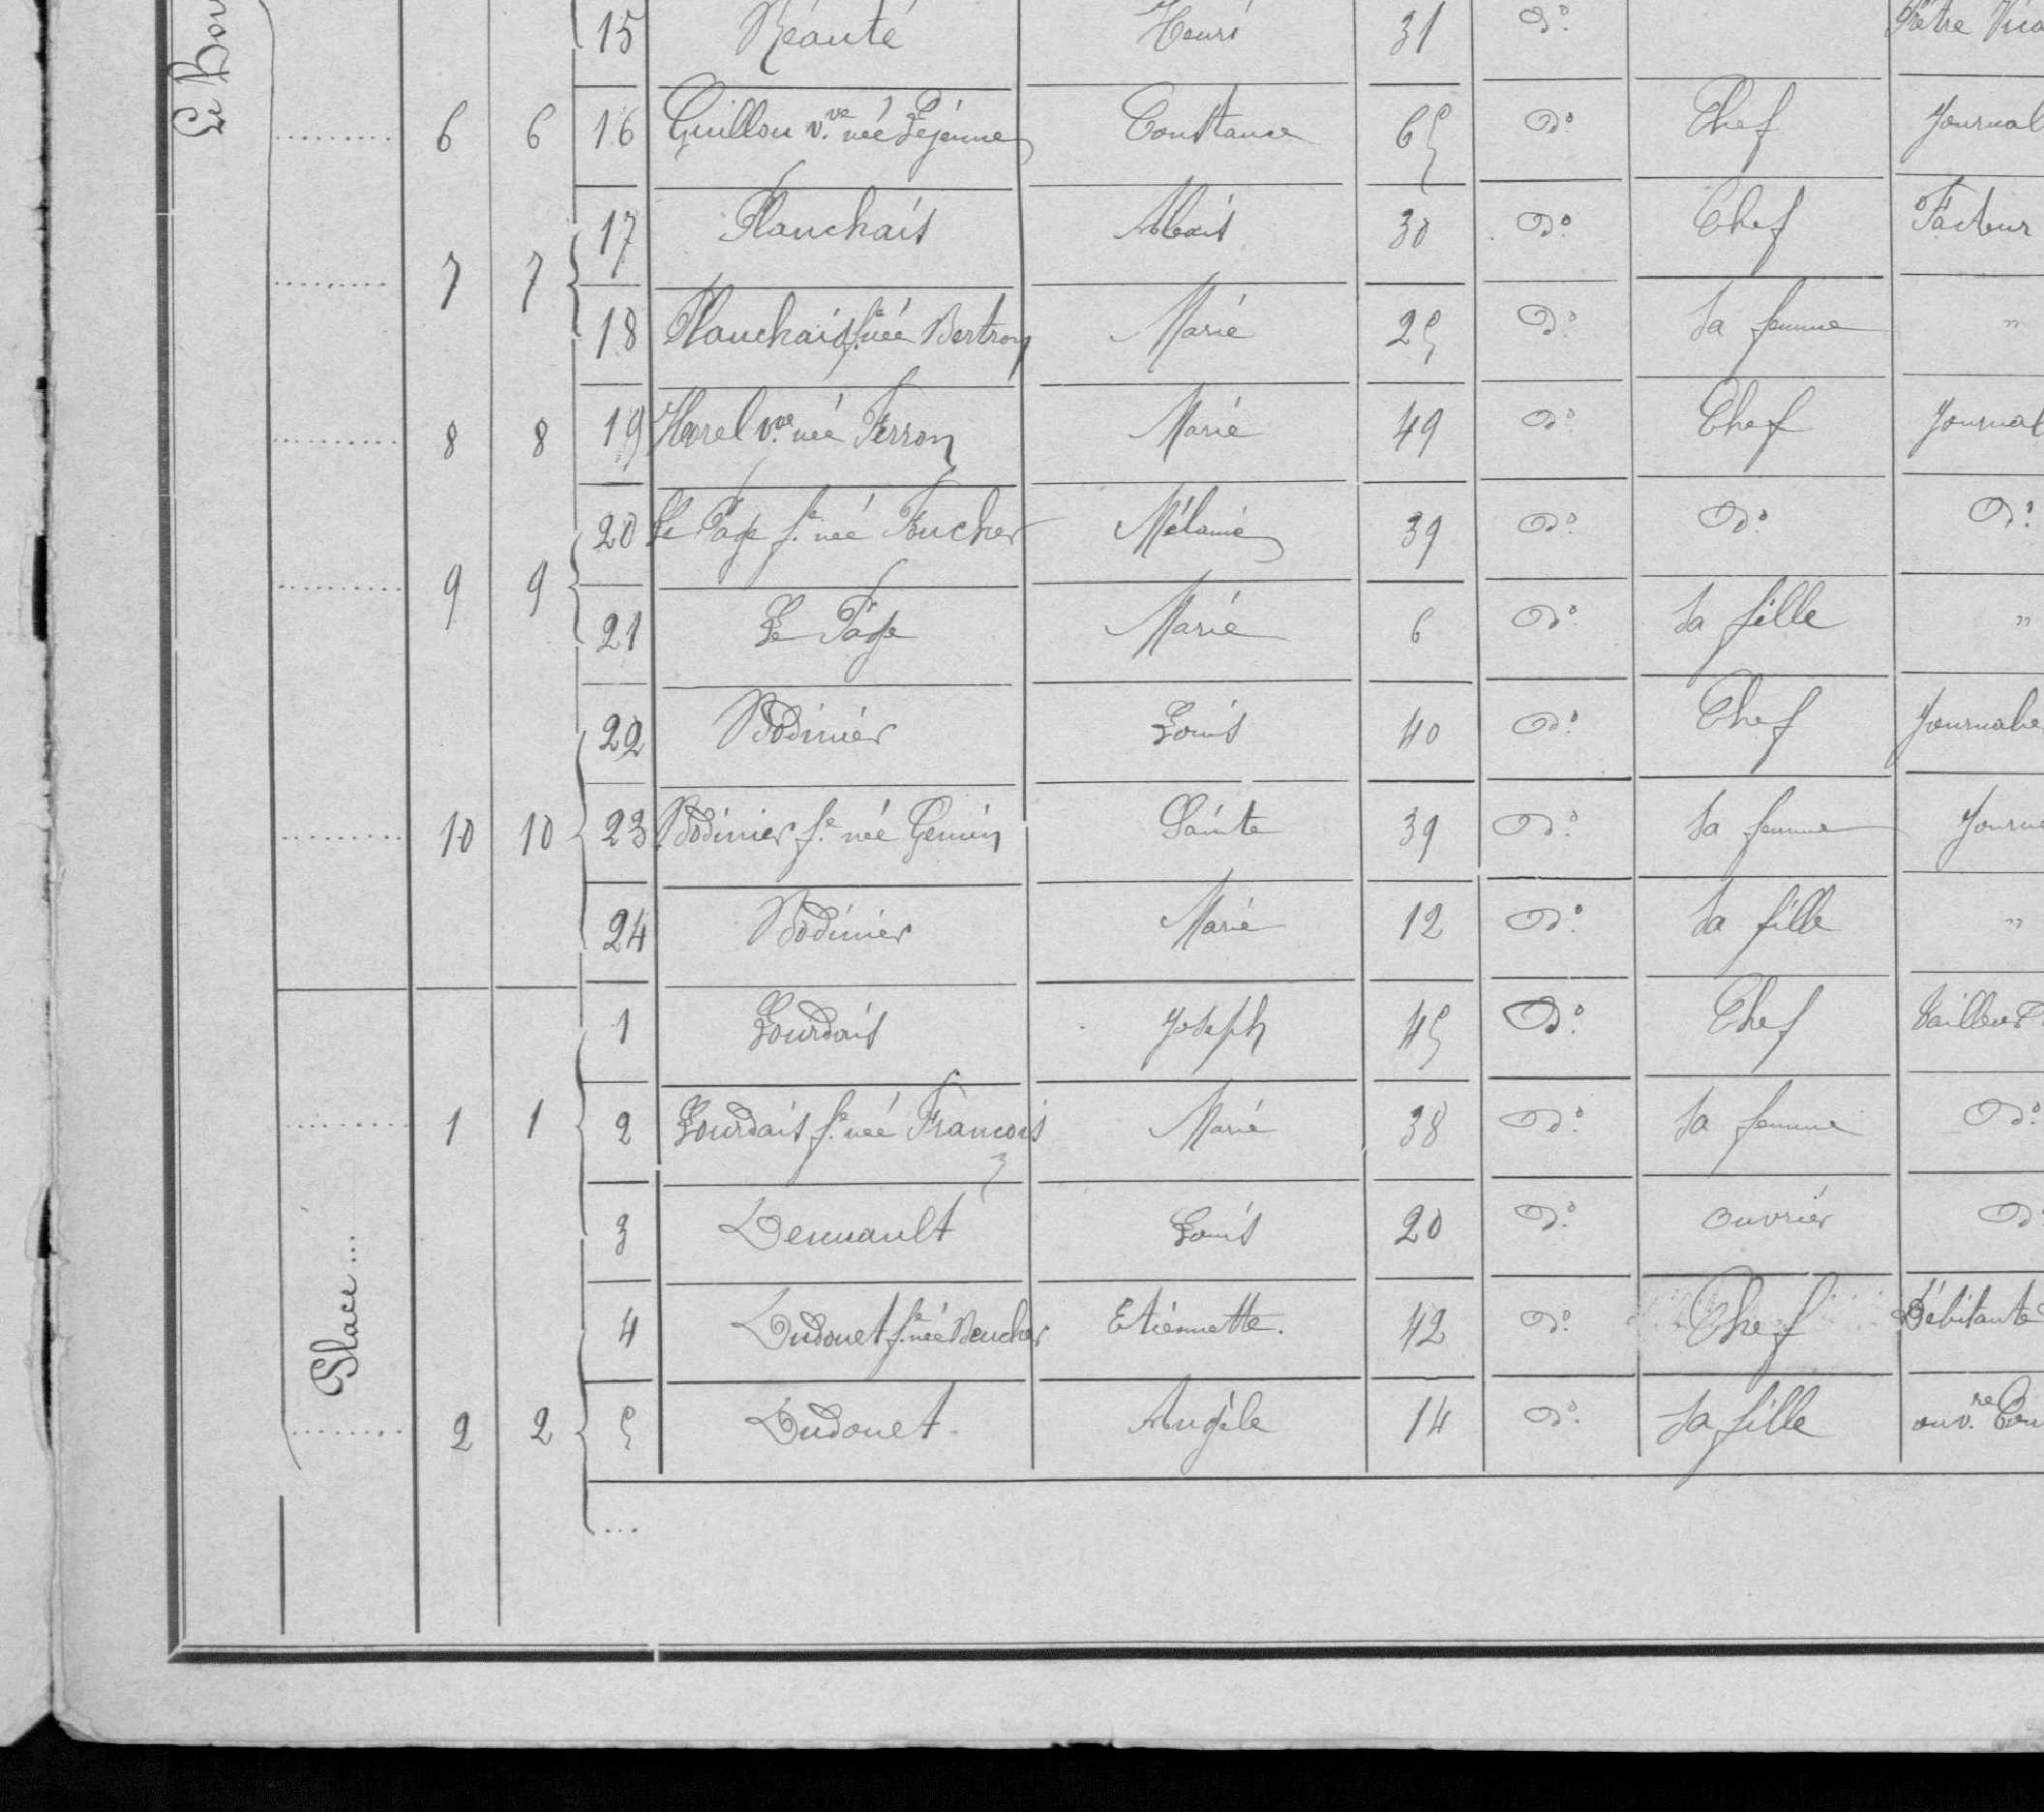 Le Bou
15 Réauté Henri 31 d° Prêtre Vica
6 6 16 Guillou v.ve née Léjeune Constance 65 d° Chef Journal
17 Planchais Alexis 30 d° Chef Facteur
7 7
18 Planchais f.e née Bertron Marie 25 d° Sa femme "
8 8 19 Horel v.ve née Ferron Marie 49 d° Chef Journal
20 Le Page f.e née Foucher Mélanie 39 d° d° d°
9 9
21 Le Page Marie 6 d° Sa fille "
22 Bodinier Louis 40 d° Chef Journalie
10 10 23 Bodinier f.e née Gemin Sainte 39 d° Sa femme Journa
24 Bodinier Marie 12 d° Sa fille "
1 Lourdais Joseph 45 d° Chef Tailleur d
1 1 2 Lourdais f.e née François Marie 38 d° Sa femme d°
3 Denuault Louis 20 d° ouvrier d°
Place ...
4 Dudouet f.e née Boucher Etiennette. 42 d° Chef Débitante d
2 2 5 Dudouet Angèle 14 d° Sa fille ouv.re Cou
...